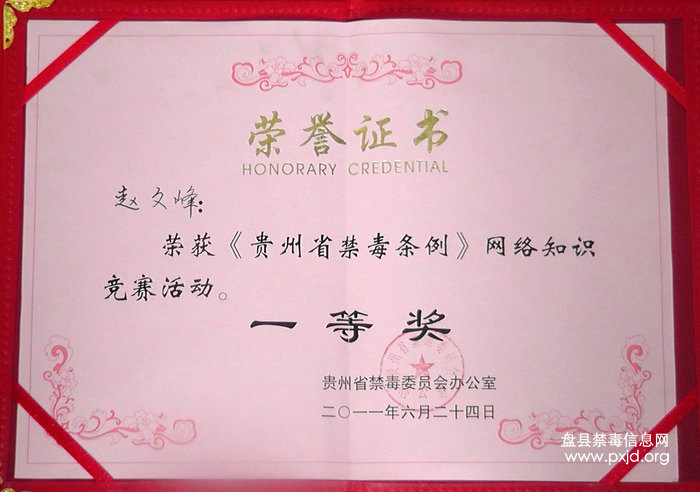 荣誉证书
HONORARY CREDENTIAL
赵文峰：
荣获《贵州省禁毒条例》网络知识
竞赛活动。
一等奖
贵州省禁毒委员会办公室
二〇一一年六月二十四日
盘县禁毒信息网
www.pxjd.org